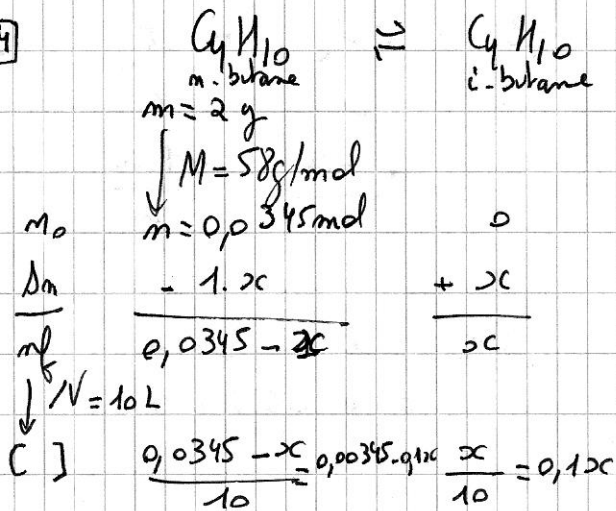 4 C4H10 ⇌ C4H10
n-butane i-butane
m = 2 g
↓ M = 58g/mol
n0 n = 0,0345mol 0
Δn - 1.x + x
nf 0,0345 - x x
↓ /V = 10 L
[ ] (0,0345 - x)/10 = 0,00345-0,1x x/10 = 0,1x